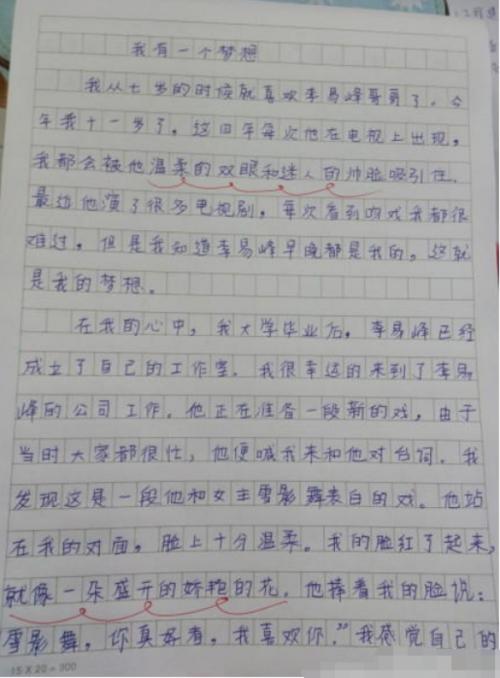 我有一个梦想
我从七岁的时候就喜欢李易峰哥哥了。今
年我十一岁了。这四年每次他在电视上出现，
我都会被他温柔的双眼和迷人的帅脸吸引住。
最近他演了很多电视剧，每次看到吻戏我都很
难过，但是我知道李易峰早晚都是我的，这就
是我的梦想。
在我的心中，我大学毕业后，李易峰已经
成立了自己的工作室。我很幸运的来到了李易
峰的公司工作。他正在准备一段新的戏，由于
当时大家都很忙，他便喊我来和他对台词。我
发现这是一段他和女主雪影舞表白的戏。他站
在我的对面，脸上十分温柔。我的脸红了起来，
就像一朵盛开的娇艳的花。他捧着我的脸说：
雪影舞，你真好看，我喜欢你。”我感觉自己的
15×20=300